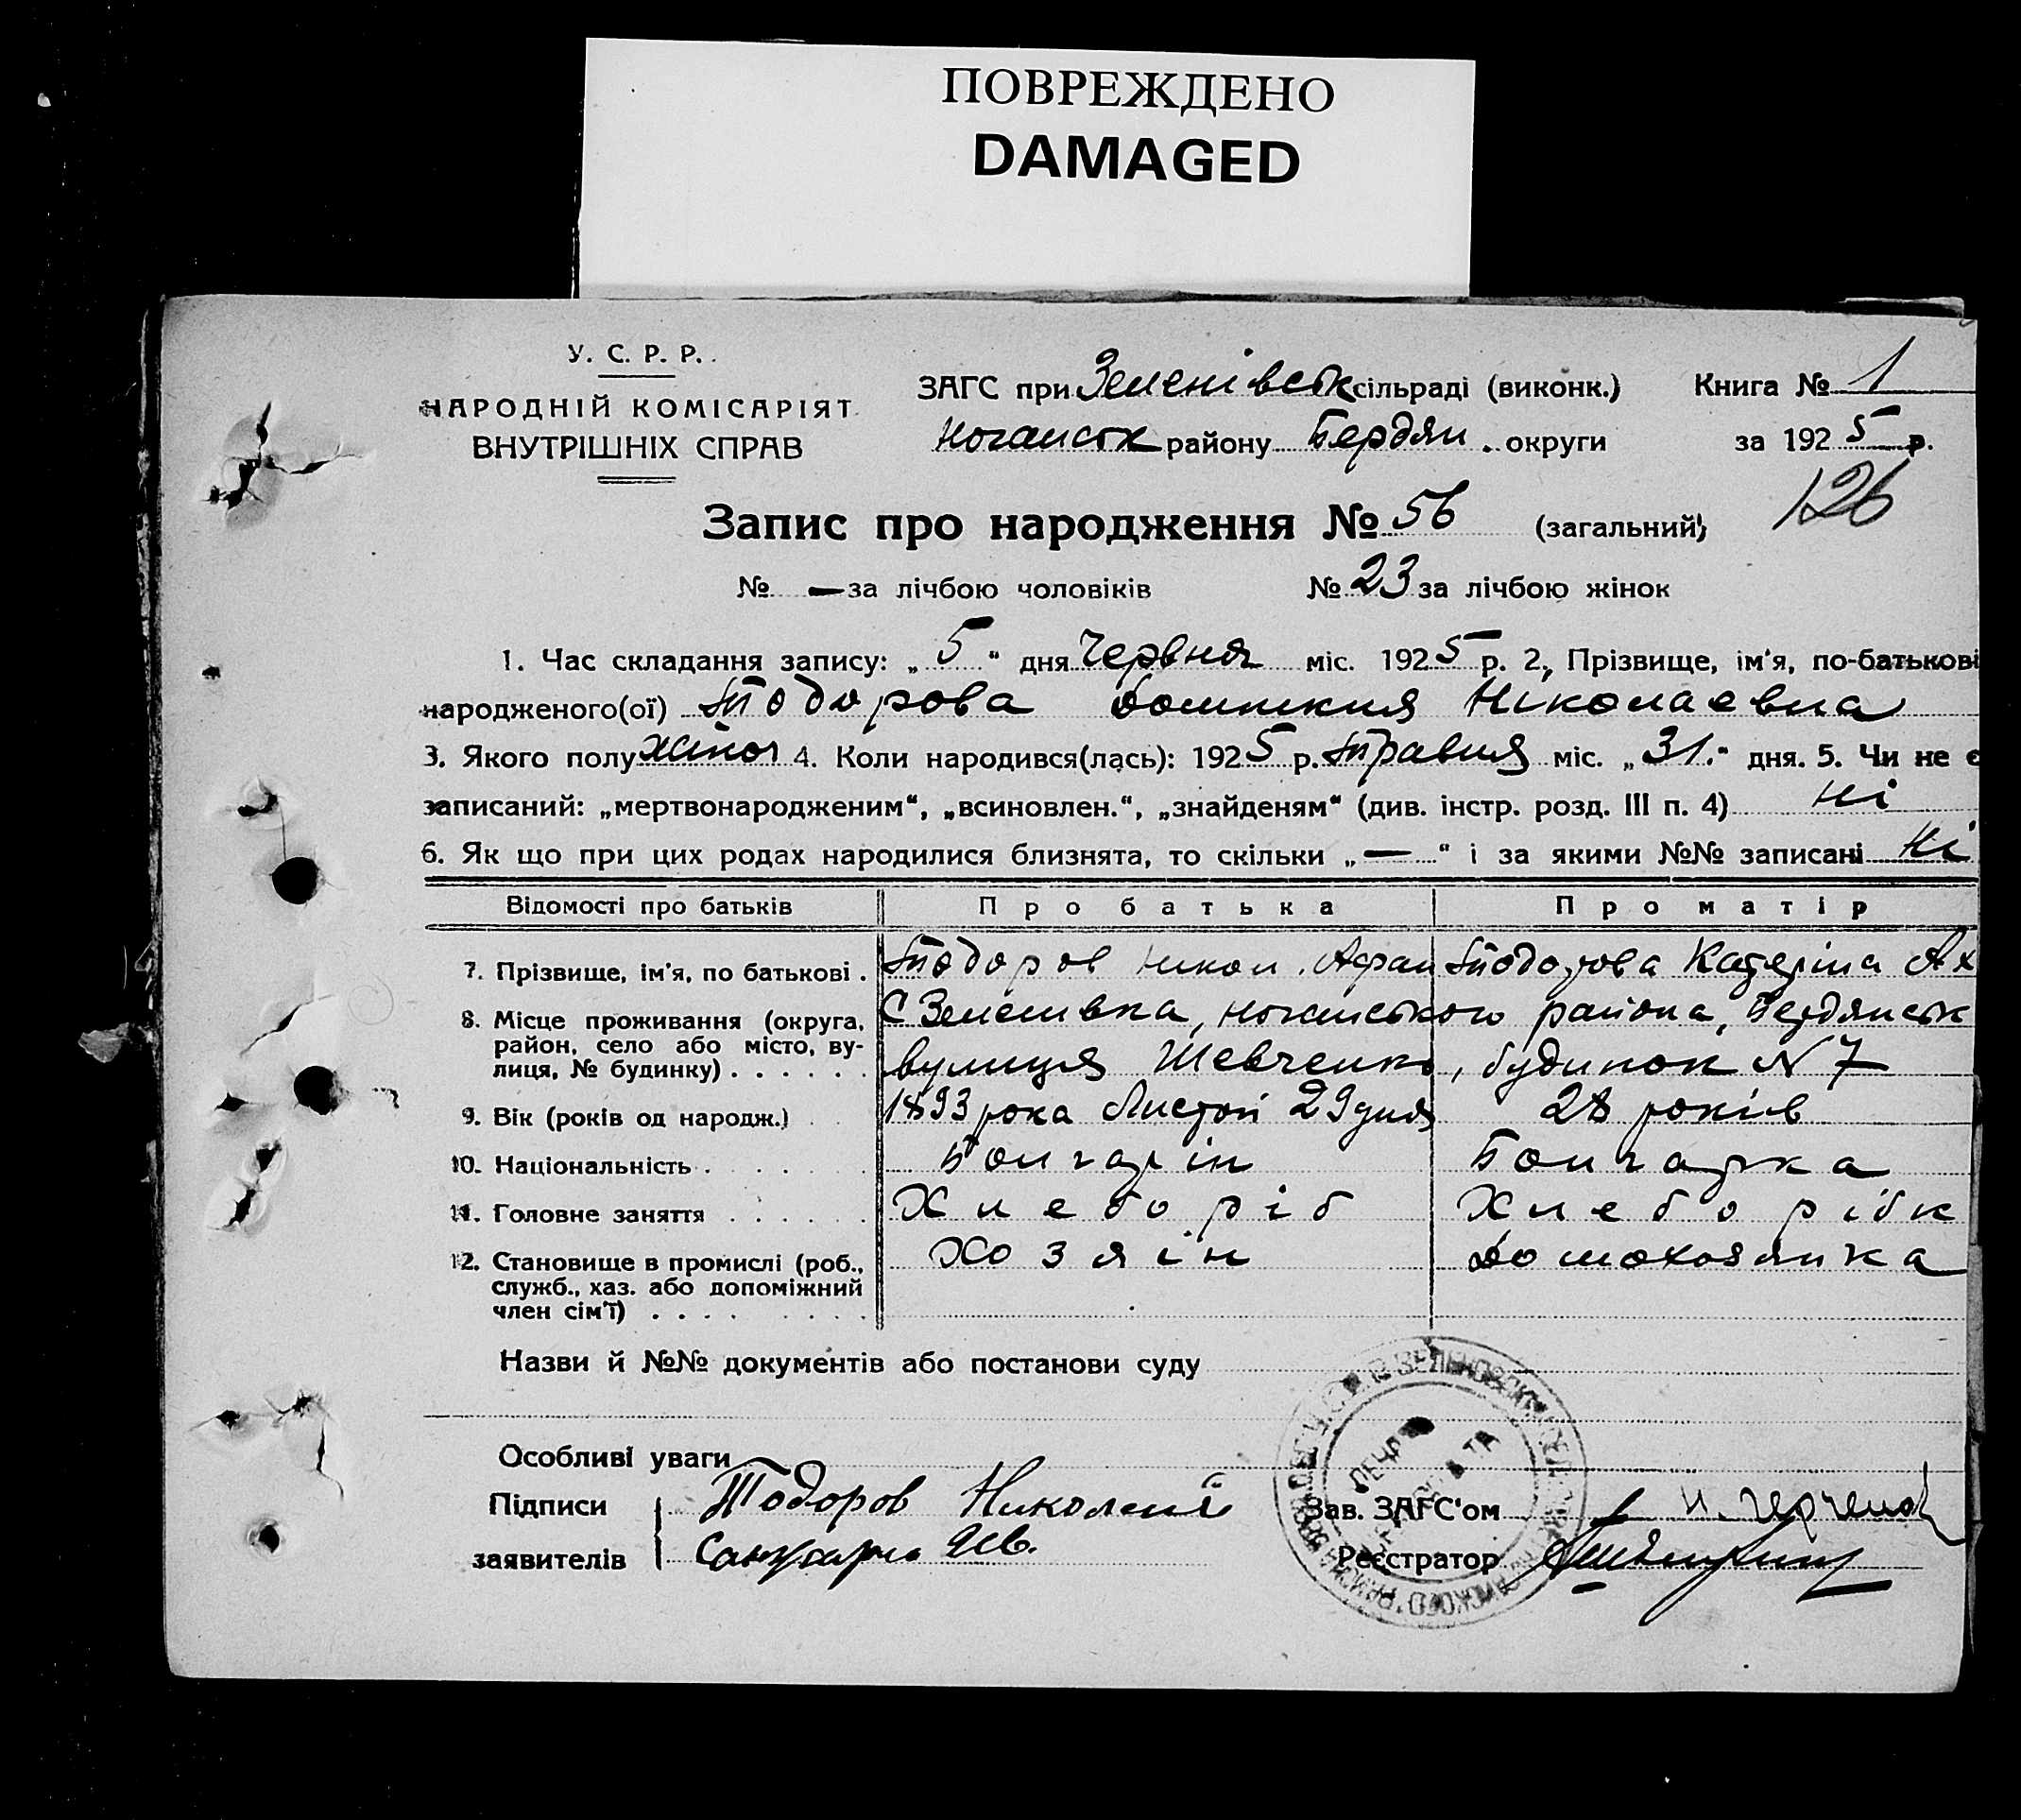 ПОВРЕЖДЕНО
DAMAGED
У. С. Р. Р.
НАРОДНІЙ КОМІСАРІЯТ
ВНУТРІШНІХ СПРАВ
ЗАГС при Зеленівськ сільраді (виконк.) Книга № 1
Ногайськ району Бердян. округи за 1925 р.
126
Запис про народження № 56 (загальний)
№ — за лічбою чоловіків № 23 за лічбою жінок
1. Час складання запису: „5“ дня Червня міс. 1925 р. 2, Прізвище, ім'я, по-батькові
народженого(ої) Тодорова Домникия Николаевна
3. Якого полу жіноч 4. Коли народився(лась): 1925 р. Травня міс. „31.“ дня. 5. Чи не є
записаний: „мертвонародженим“, „всиновлен.“, „знайденям“ (див. інстр. розд. III п. 4) Ні
6. Як що при цих родах народилися близнята, то скільки „—“ і за якими №№ записані Ні
Відомості про батьків Про батька Про матір
7. Прізвище, ім'я, по батькові . Тодоров Никол. Афан Тодорова Катеріна Ах
8. Місце проживання (округа, С Зеленивка, Ногайського района, Бердянськ
район, село або місто, ву-
лиця, № будинку) . . . . . . вулиця Шевченко, будинок N 7
9. Вік (років од народж.) 1893 рока Листоп 29 дня 28 років
10. Національність . Болгарін Болгарка
11. Головне заняття . . . . . . Хлеборіб Хлеборібк
12. Становище в промислі (роб., Хозяін Домохозяика
служб., хаз. або допоміжний
член сім'ї) . . . .
Назви й №№ документів або постанови суду
Особливі уваги
Підписи Тодоров Николай Зав. ЗАГС'ом
заявителів Реєстратор